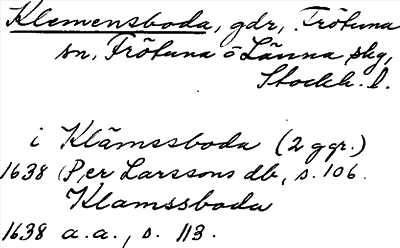 Klemensboda, gdr, Frötuna
sn, Frötuna o Länna skg,
Stockh. l.
i Klämssboda (2 ggr.)
1638 (Per Larssons db, s. 106.
Klamssboda
1638 a.a., s. 113.